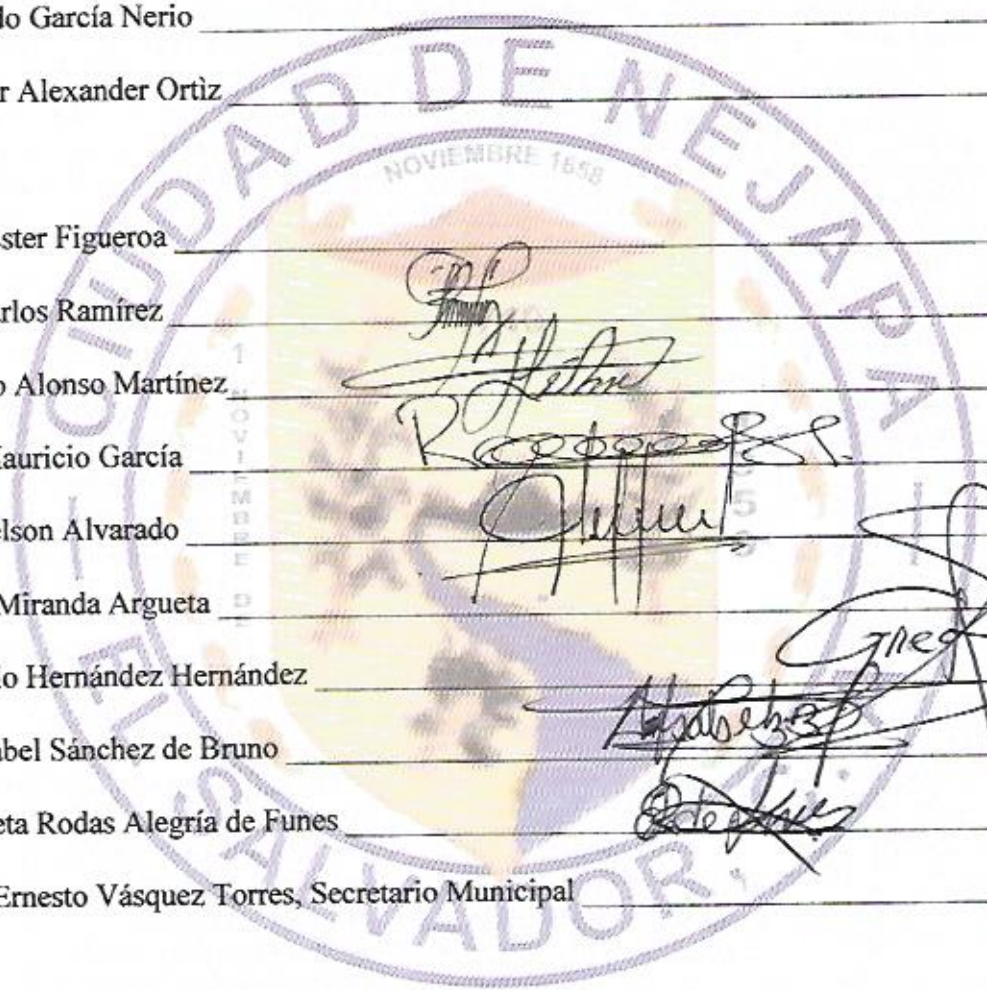 do García Nerio
r Alexander Ortìz
ster Figueroa
rlos Ramírez
o Alonso Martínez
auricio García
elson Alvarado
Miranda Argueta
o Hernández Hernández
bel Sánchez de Bruno
eta Rodas Alegría de Funes
Ernesto Vásquez Torres, Secretario Municipal
CIUDAD DE NEJAPA
EL SALVADOR,
NOVIEMBRE 1658
1 NOVIEMBRE DE